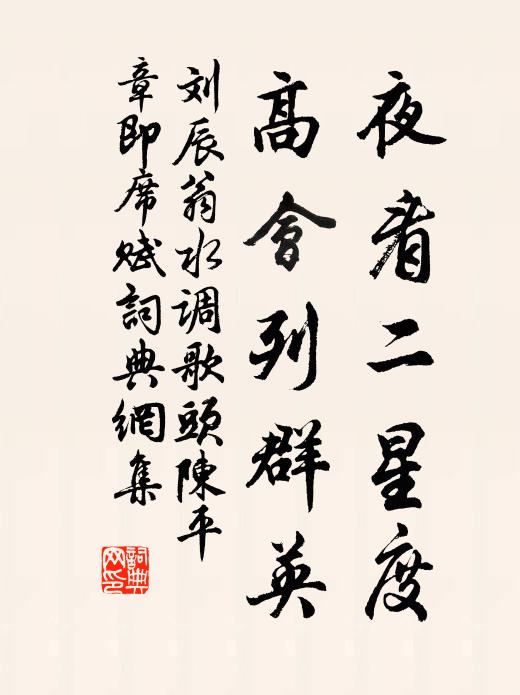 夜看二星度
高會列群英
刘辰翁水调歌頭陳平
章即席赋詞典網集
詞典网印